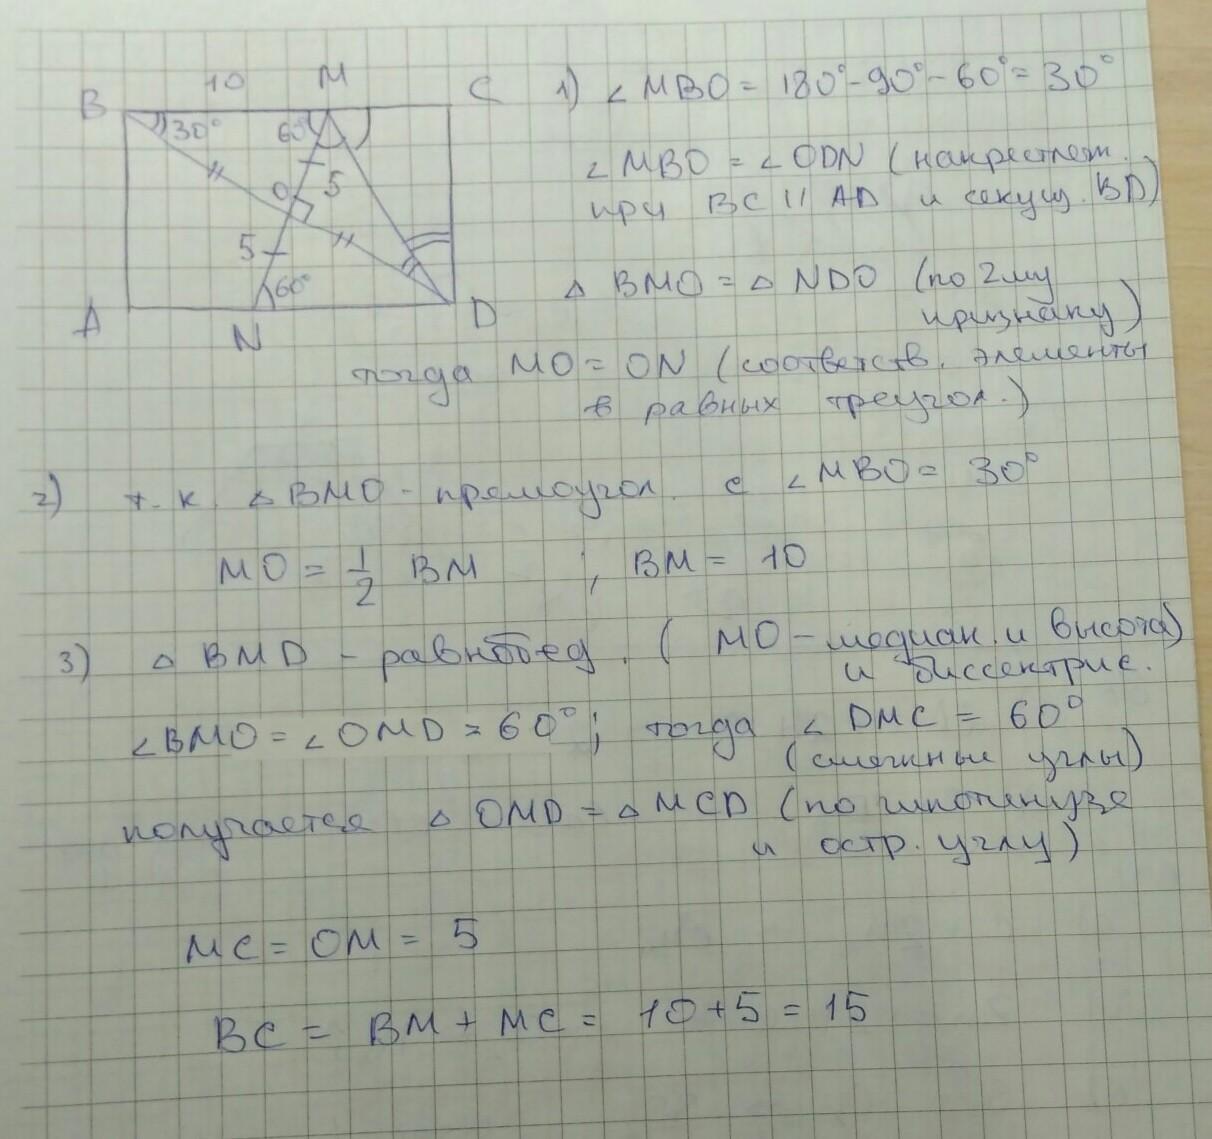 B 10 M C
30° 60°
O 5
5
60°
A N D
1) ∠MBO = 180° - 90° - 60° = 30°
∠MBO = ∠ODN (накрестлеж.
при BC || AD и секущ. BD)
△ BMO = △ NDO (по 2му
признаку)
тогда MO = ON (соответств. элементы
в равных треугол.)
2) т.к. △BMO - прямоугол. с ∠MBO = 30°
MO = 1/2 BM ; BM = 10
3) △ BMD - равнобед. ( MO - медиан. и высота)
и биссектрис.
∠BMO = ∠OMD = 60° ; тогда ∠DMC = 60°
(смежные углы)
получается △ OMD = △ MCD (по гипотенузе
и остр. углу)
MC = OM = 5
BC = BM + MC = 10 + 5 = 15